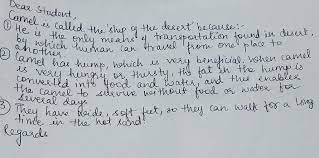 Dear Student,
Camel is called the 'ship of the desert' because:-
① He is the only means of transportation found in desert,
by which human can travel from one place to
another.
② Camel has hump, which is very beneficial. When camel
is very hungry or thirsty, the fat in the hump is
converted into food and water, and this enables
the camel to survive without food or water for
several days
③ They have wide, soft feet, so they can walk for a long
time in the hot sand.
Regards